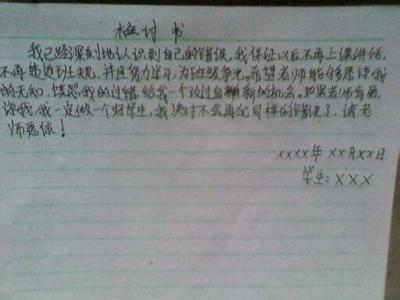 检讨书
我已经深刻地认识到自己的错误,我保证以后不再上课讲话,
不再违边班规,并且努力学习,为班级争光。希望老师能够原谅我
的无知,饶恕我的过错给我一个改过自新的机会。如果老师肯
谅我,我一定做一个好学生,我决对不会再犯同样的错误了,请老
师愿谅!
xxxx年xx月xx日
学生:xxx